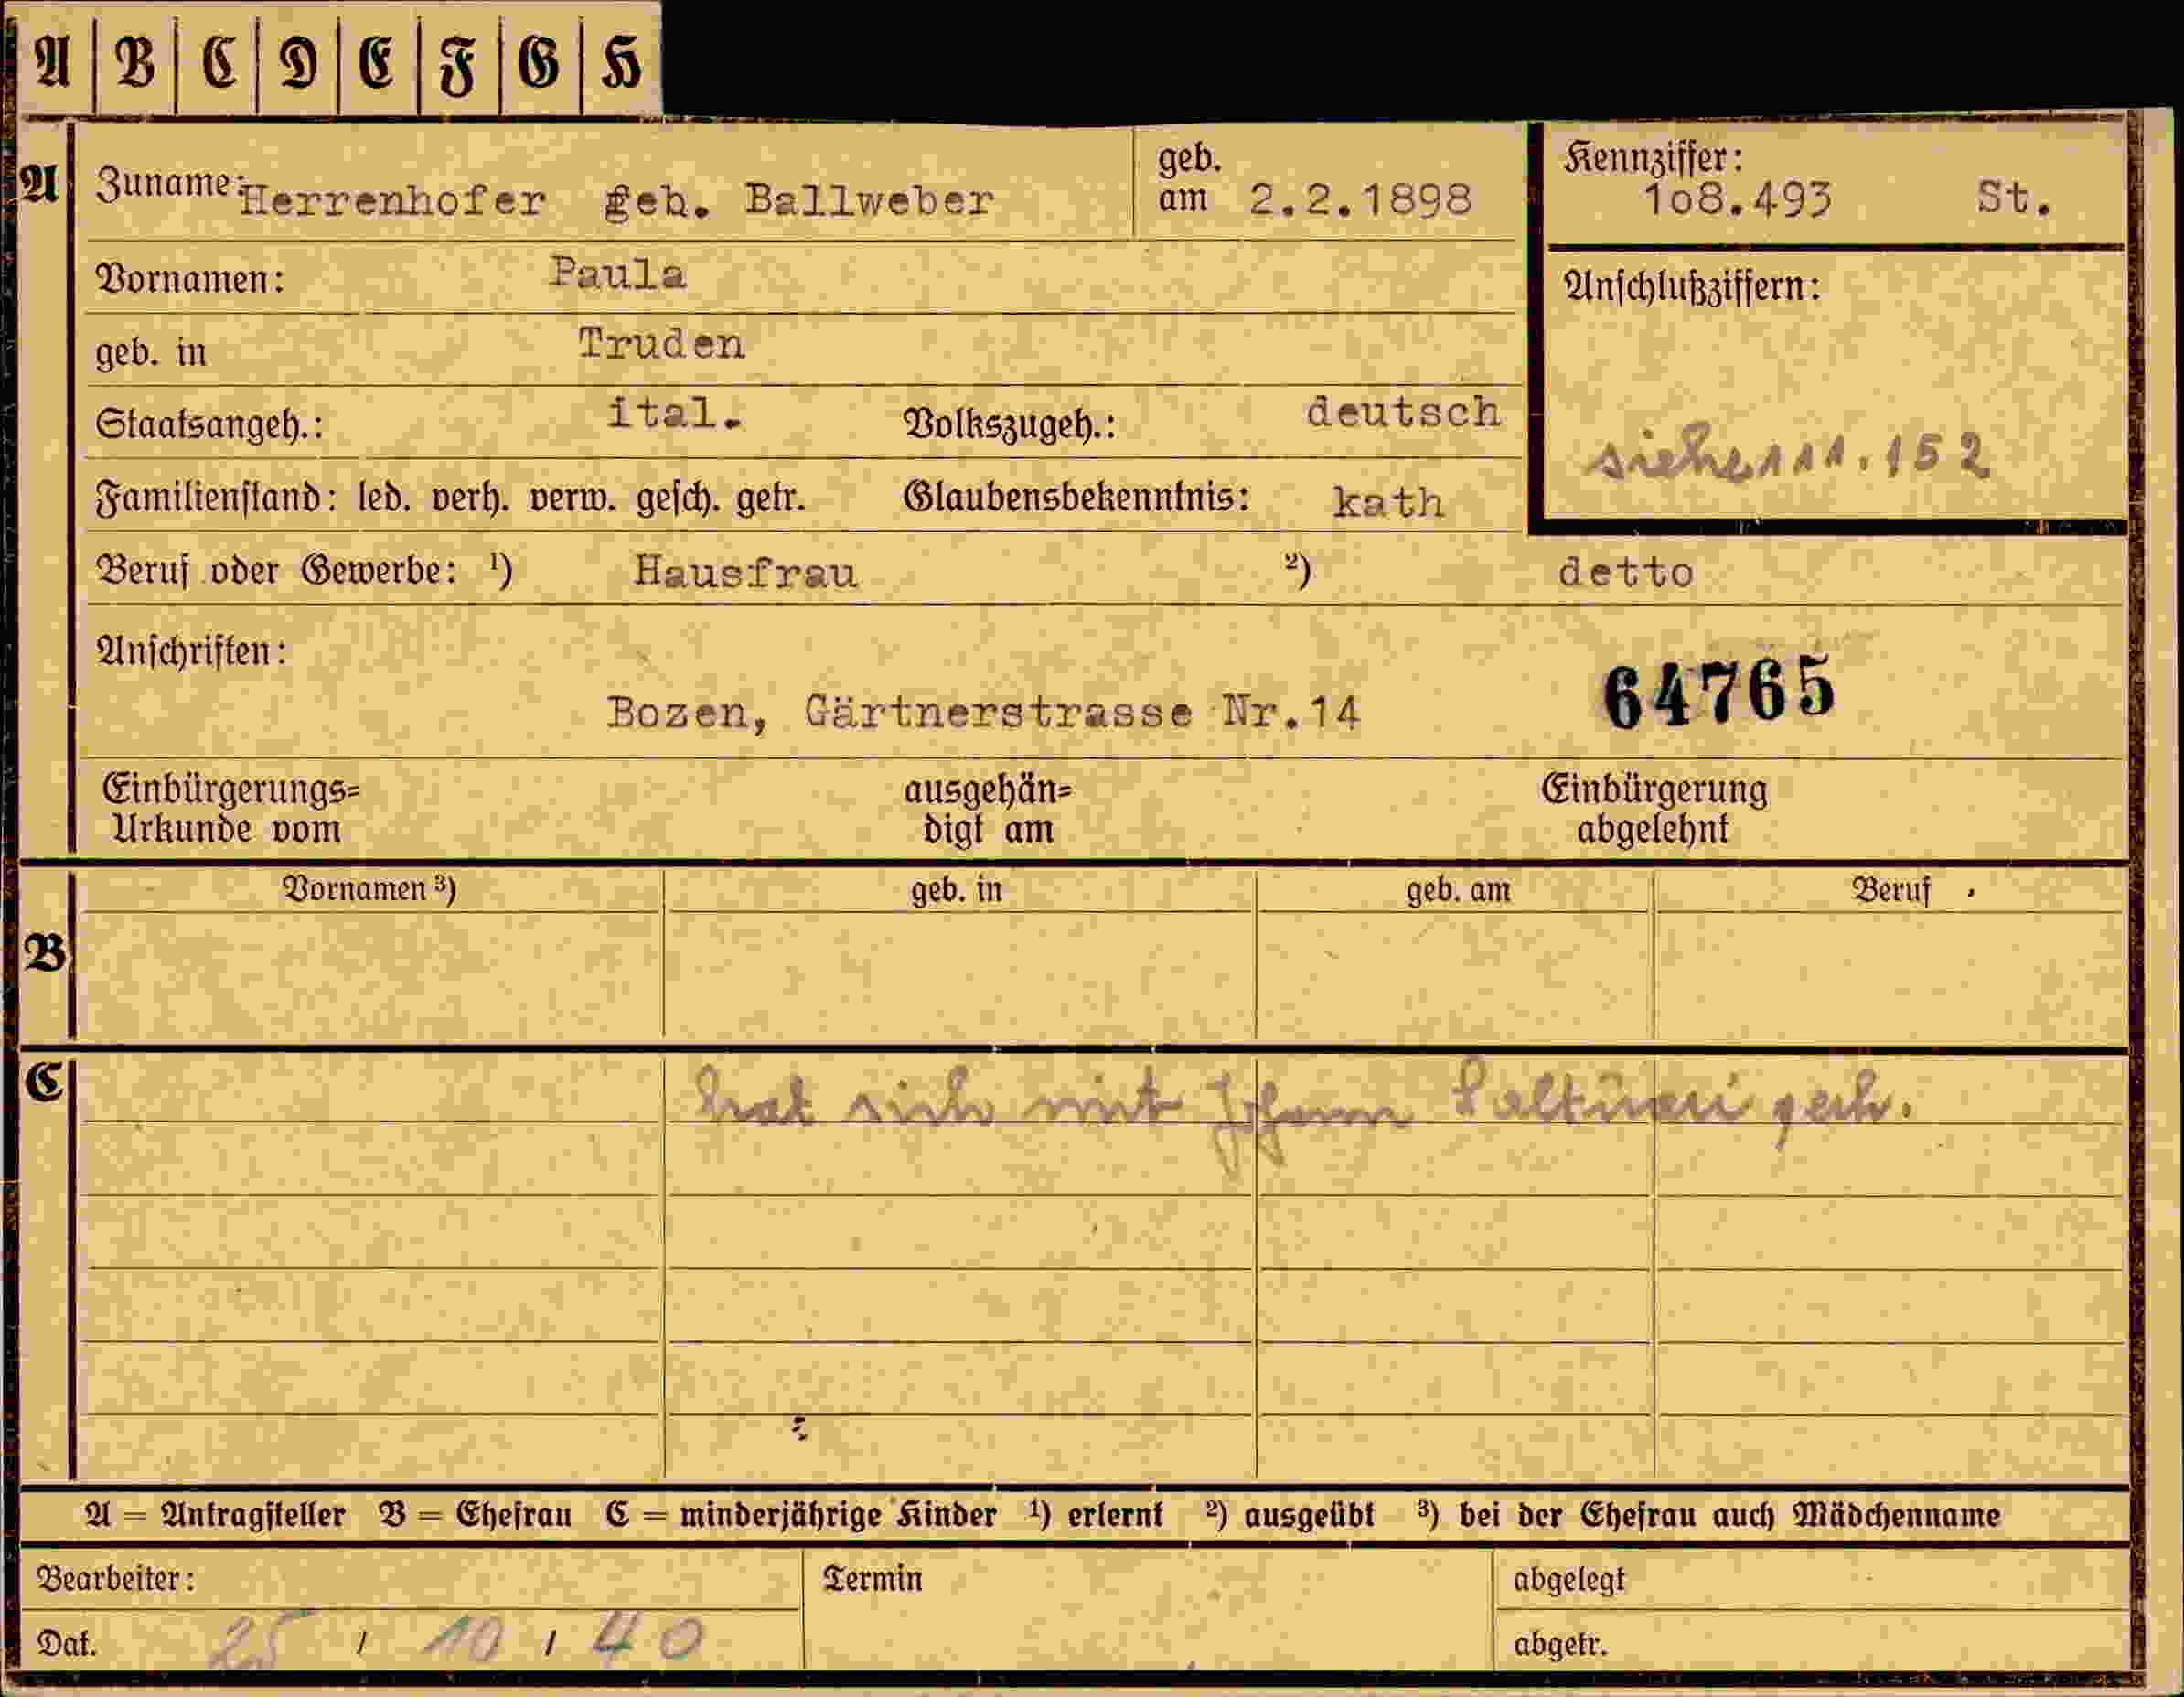 A B C D E F G H
A Zuname: Herrenhofer geb. Ballweber geb. am 2.2.1898 Kennziffer: 1o8.493 St.
Vornamen: Paula Anschlußziffern:
geb. in Truden
Staatsangeh.: ital. Volkszugeh.: deutsch siehe 111.152
Familienstand: led. verh. verw. gesch. getr. Glaubensbekenntnis: kath
Beruf oder Gewerbe: ¹) Hausfrau ²) detto
Anschriften:
Bozen, Gärtnerstrasse Nr.14 64765
Einbürgerungs= ausgehän= Einbürgerung
Urkunde vom digt am abgelehnt
Vornamen ³) geb. in geb. am Beruf
B
C hat sich mit Johann
A = Antragsteller B = Ehefrau C = minderjährige Kinder ¹) erlernt ²) ausgeübt ³) bei der Ehefrau auch Mädchenname
Bearbeiter: Termin abgelegt
Dat. 25 / 10 / 40 abgetr.